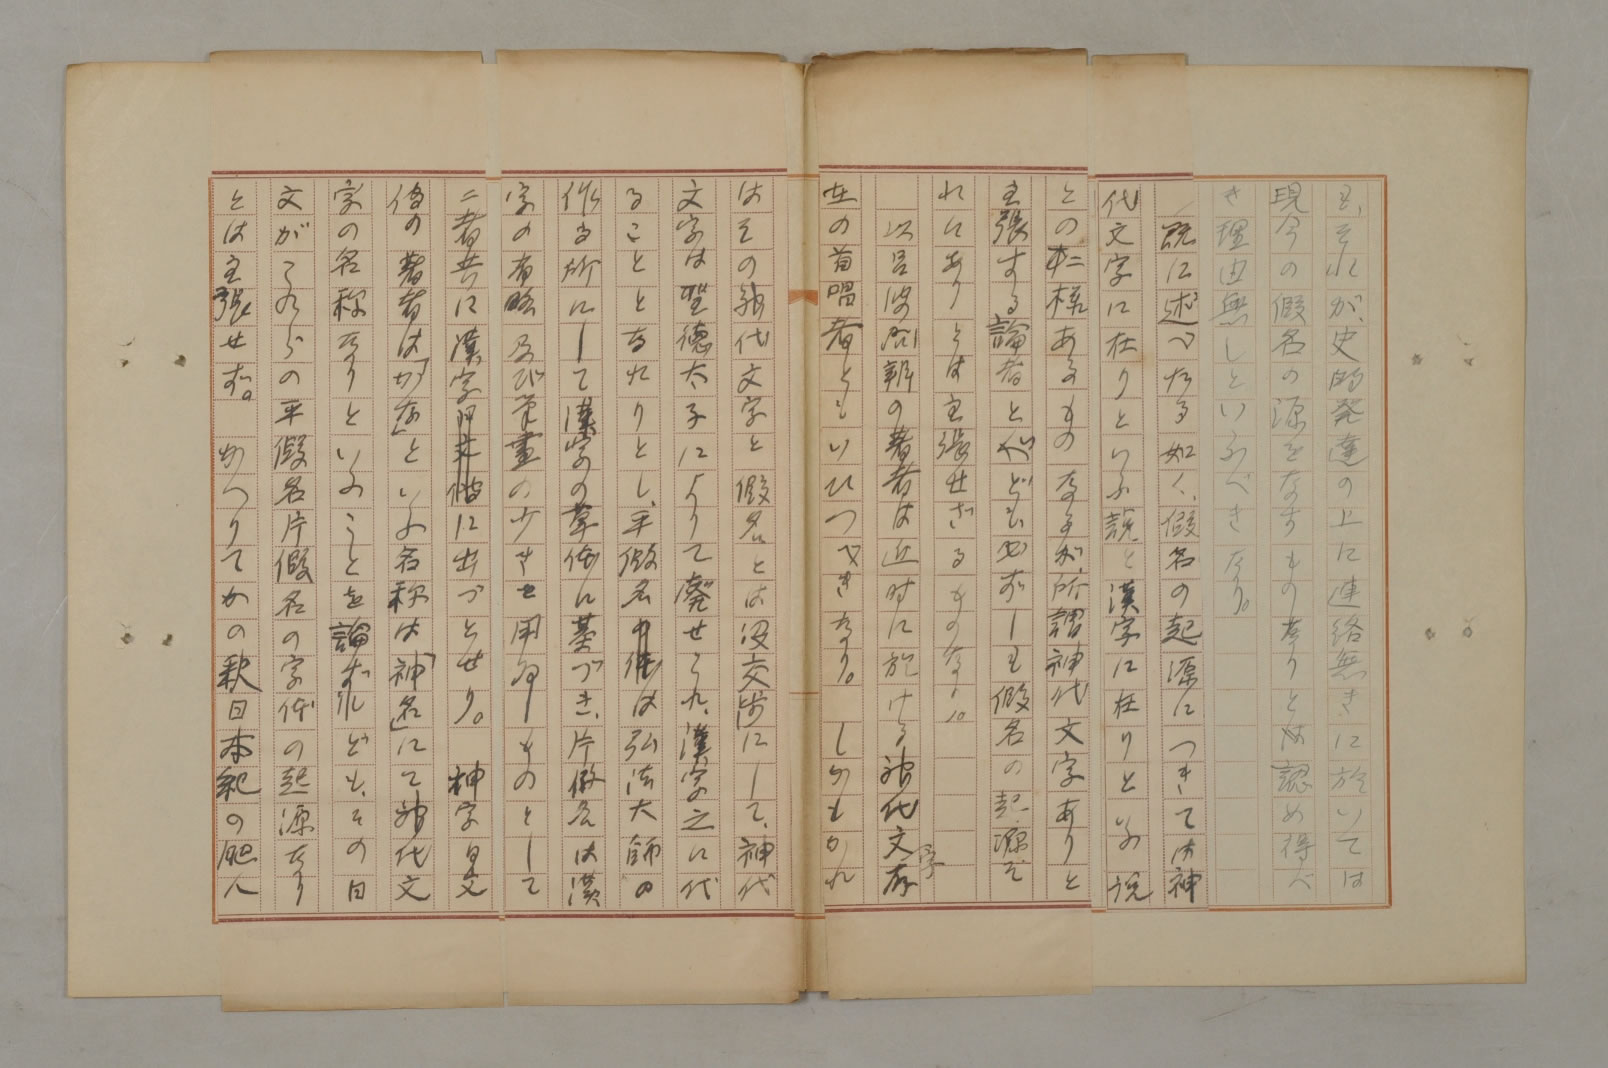 も、それが、史的発達の上に連絡無きに於いては
現今の假名の源をなすものなりとは認め得べ
き理由無しといふべきなり。
既に述べたる如く、假名の起源につきては神
代文字に在りといふ説と漢字に在りといふ説
との二様あるものなるが、所謂神代文字ありと
主張する論者と雖ども必ずしも假名の起源が
れにありとは主張せざるものなり。
以呂波問辨の著者は近時に於ける神代文字存
在の首唱者ともいひつべきなり。しかもかれ
はその神代文字と假名とは没交渉にして、神代
文字は聖徳太子によりて廃せられ、漢字之に代
ることとなれりとし、平假名の体は弘法大師の
作る所にして漢字の草体に基づき、片假名は漢
字の省略及び筆畫の少きを用ゐしものとして
二者共に漢字に出づとせり。神字日文
傳の著者は「かな」といふ名称は「神名」にて神代文
字の名称なりといふことを論ずれども、その日
文がこれらの平假名片假名の字体の起源なり
とは主張せず。かへりてかの釈日本紀の肥人